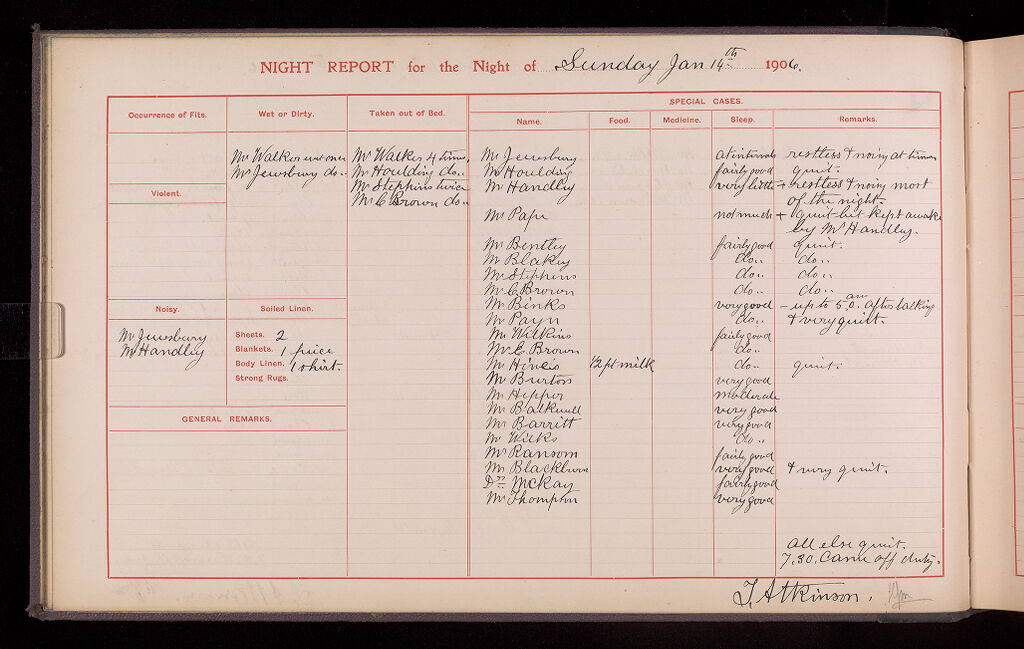 NIGHT REPORT for the Night of Sunday Jan 14th 1906.
Occurrence of Fits.
Wet or Dirty.
Taken out of Bed.
SPECIAL CASES.
Name. Food. Medicine. Sleep. Remarks.
Mr Walker wet once
Mr Jewsbury do..
Mr Walker 4 times.
Mr Houlding do..
Mr Stephens twice
Mr C Brown do..
Violent.
Noisy.
Mr Jewsbury
Mr Handley
Soiled Linen.
Sheets. 2
Blankets. 1 piece
Body Linen. 1 shirt.
Strong Rugs.
GENERAL REMARKS.
Mr Jewsbury at intervals restless & noisy at times
Mr Houlding fairly good quiet.
Mr Handley very little + restless & noisy most
of the night.
Mr Pape not much + quiet but kept awake
by Mr Handley.
Mr Bentley fairly good quiet.
Mr Blakey do.. do..
Mr Stephens do.. do..
Mr C Brown do.. do..
Mr Binks very good – up to 5.0 am. after talking
Mr Payn do.. & very quiet.
Mr Wilkins fairly good
Mr E Brown do..
Mr 1/2 pt milk do.. quiet.
Mr Burton very good
Mr Hepper moderate
Mr Balkwill very good
Mr Barritt very good
Mr Wilks do..
Mr Ransom fairly good
Mr Blackburn very good & very quiet.
Dr McKay fairly good
Mr Thompson very good
all else quiet.
7.30. Came off duty.
T. Atkinson.